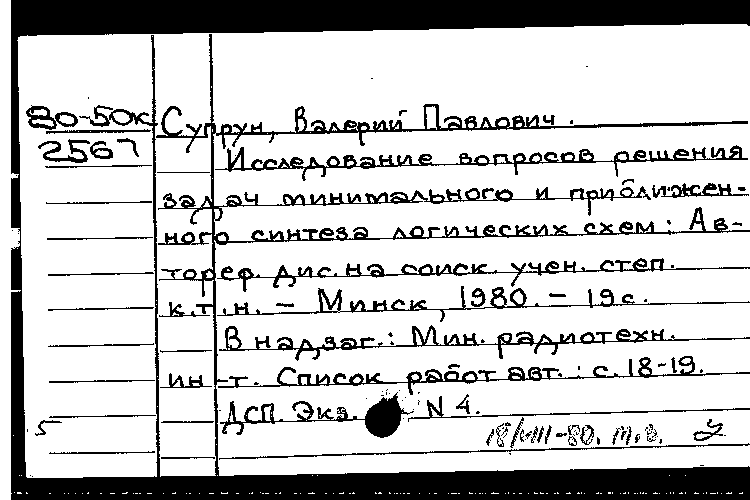 80-50к Супрун, Валерий Павлович.
2567 Исследование вопросов решения
задач минимального и приближен-
ного синтеза логических схем: Ав-
тореф. дис. на соиск. учен. степ.
к.т.н. – Минск, 1980. – 19 с.
В надзаг.: Мин. радиотехн.
ин-т. Список работ авт.: с. 18-19.
ДСП. Экз. N 4.
5
18/VIII-80. т.з.